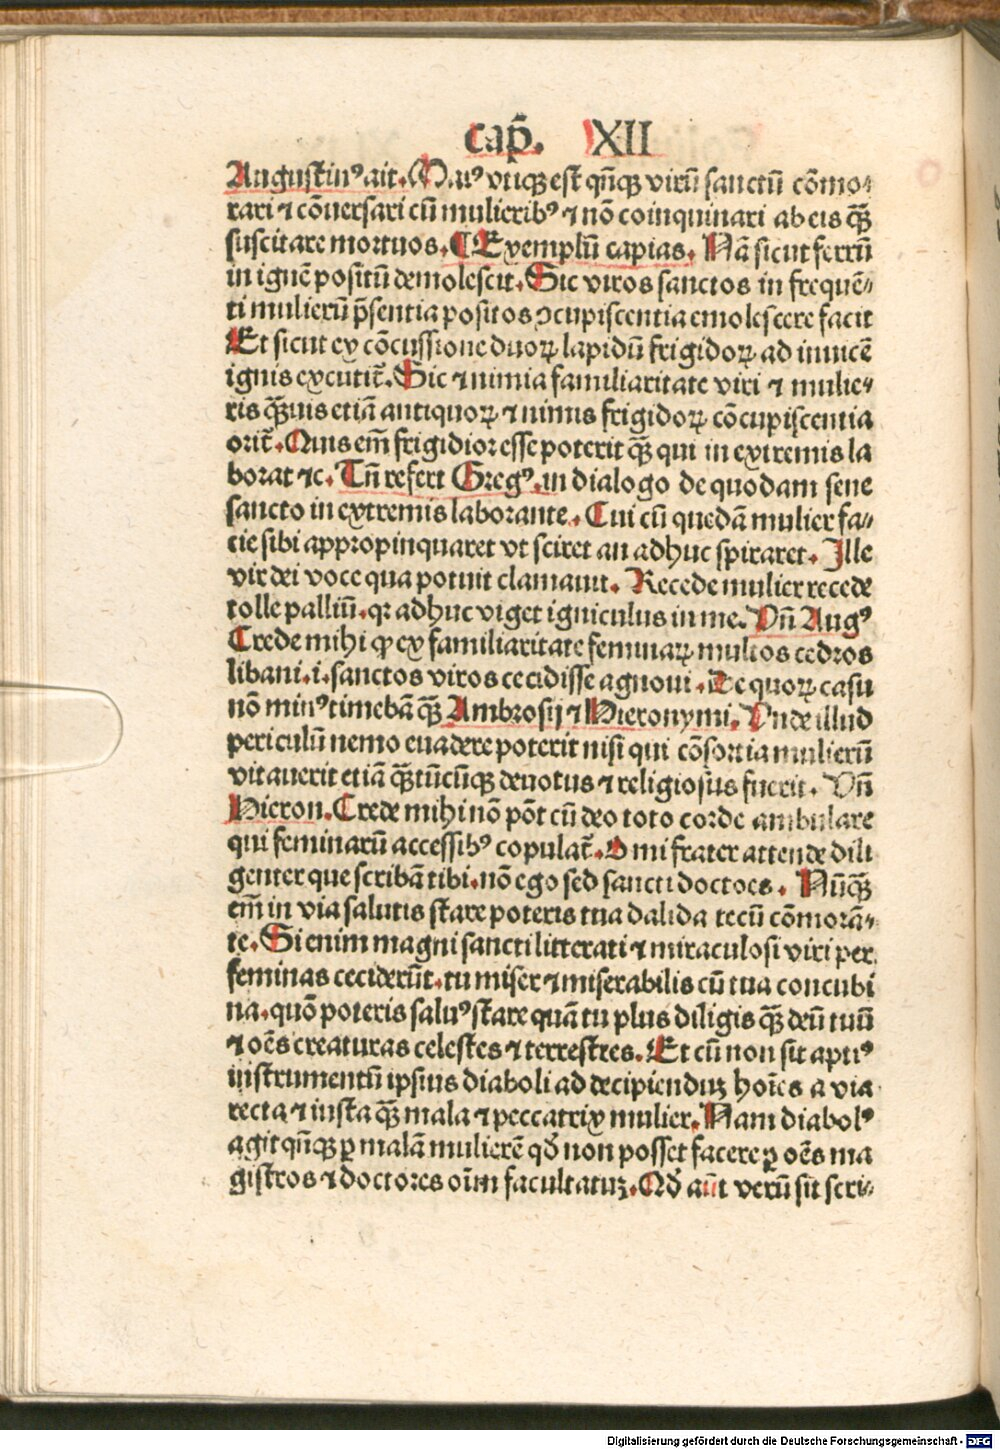 Cap̄. XII
Augustinꝰ ait. Maiꝰ vtiqꝫ est qn̄qꝫ virū sanctū cōmo⸗
rari ⁊ cōuersari cū mulieribꝰ ⁊ nō coinquinari ab eis qꝫ̄
suscitare mortuos. ¶ Exemplū capias. Nā sicut ferrū
in ignē positū demolescit. Sic viros sanctos in frequē⸗
ti mulierū p̄sentia positos ꝯcupiscentia emolescere facit
Et sicut ex cōcussione duoꝝ lapidū frigidoꝝ ad inuicē
ignis excutit̄. Sic ⁊ nimia familiaritate viri ⁊ mulie⸗
ris qꝫ̄uis etiā antiquoꝝ ⁊ nimis frigidoꝝ cōcupiscentia
orit̄. Quis em̄ frigidior esse poterit qꝫ̄ qui in extremis la
borat ⁊c. Tn̄ refert Gregꝰ. in dialogo de quodam sene
sancto in extremis laborante. Cui cū quedā mulier fa⸗
cie sibi appropinquaret vt sciret an adhuc spiraret. Ille
vir dei voce qua potuit clamauit. Recede mulier recede
tolle palliū. qꝛ adhuc viget igniculus in me. Vn̄ Augꝰ
Crede mihi ꝙ ex familiaritate feminaꝝ multos cedros
libani .i. sanctos viros cecidisse agnoui. De quoꝝ casu
nō minꝰ timebā qꝫ̄ Ambrosij ⁊ Hieronymi. Vnde illud
periculū nemo euadere poterit nisi qui cōsortia mulierū
vitauerit etiā qꝫ̄tūcūqꝫ deuotus ⁊ religiosus fuerit. Vn̄
Hieron. Crede mihi nō pōt cū deo toto corde ambulare
qui feminarū accessibꝰ copulat̄. O mi frater attende dili
genter que scribā tibi. nō ego sed sancti doctoes. Nūqꝫ̄
em̄ in via salutis stare poteris tua dalida tecū cōmorā⸗
te. Si enim magni sancti litterati ⁊ miraculosi viri per
feminas ceciderūt. tu miser ⁊ miserabilis cū tua concubi
na. quō poteris saluꝰ stare quā tu plus diligis qꝫ̄ deū tuū
⁊ oēs creaturas celestes ⁊ terrestres. Et cū non sit aptiꝰ
instrumentū ipsius diaboli ad decipienduꝫ hoīes a via
recta ⁊ iusta qꝫ̄ mala ⁊ peccatrix mulier. Nam diabolꝰ
agit qn̄qꝫ ꝑ malā mulierē qď non posset facere ꝑ oēs ma
gistros ⁊ doctores oīm facultatuꝫ. Qď aūt verū sit scri⸗
Digitalisierung gefördert durch die Deutsche Forschungsgemeinschaft - DFG